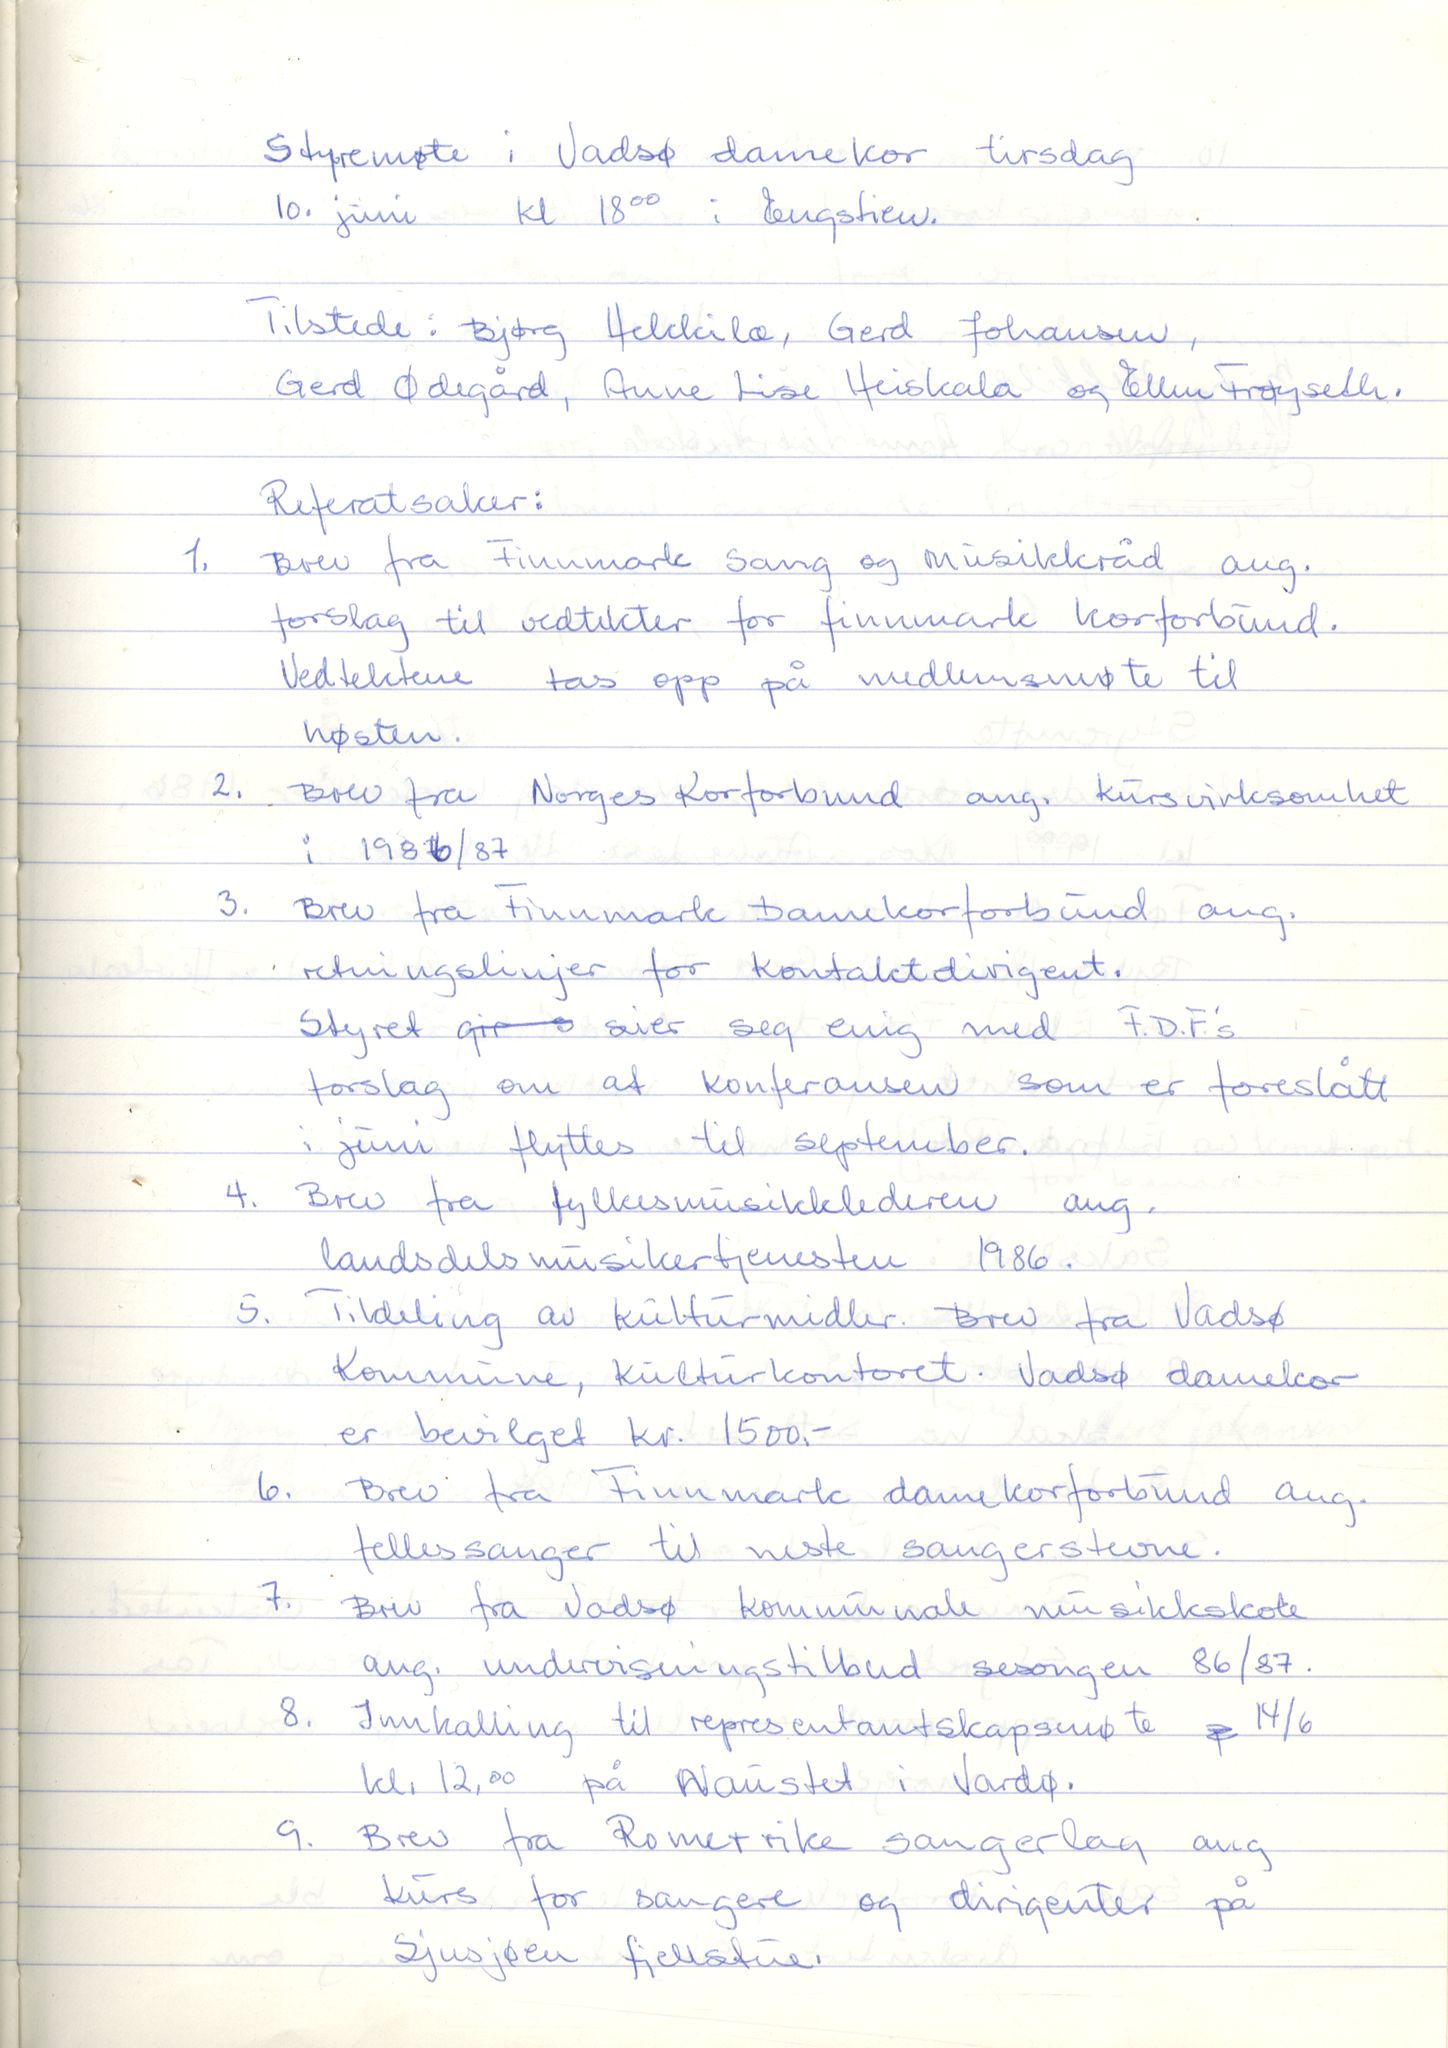 Styremøte i Vadsø damekor tirsdag
10. juni kl 18⁰⁰ i Engstien.
Tilstede: Bjørg Hekkila, Gerd Johansen,
Gerd Ødegård, Anne Lise Heiskala og Ellen Frøyseth.
Referatsaker:
1. Brev fra Finnmark sang og musikkråd ang.
forslag til vedtekter for finnmark korforbund.
Vedtektene tas opp på medlemsmøte til
høsten.
2. Brev fra Norges Korforbund ang. kursvirksomhet
i 1986/87
3. Brev fra Finnmark Damekorforbund ang.
retningslinjer for kontaktdirigent.
Styret sier seg enig med F.D.F.'s
forslag om at konferansen som er foreslått
i juni flyttes til september.
4. Brev fra fylkesmusikklederen ang.
landsdelsmusikertjenesten 1986.
5. Tildeling av kulturmidler. Brev fra Vadsø
Kommune, kulturkontoret. Vadsø damekor
er bevilget kr. 1500,-
6. Brev fra Finnmark damekorforbund ang.
fellessanger til neste sangerstevne.
7. Brev fra Vadsø kommunale musikkskole
ang. undervisningstilbud sesongen 86/87.
8. Innkalling til representantskapsmøte 14/6
kl. 12,⁰⁰ på Naustet i Vardø.
9. Brev fra Romerrike sangerlag ang
kurs for sangere og dirigenter på
Sjusjøen fjellstue.